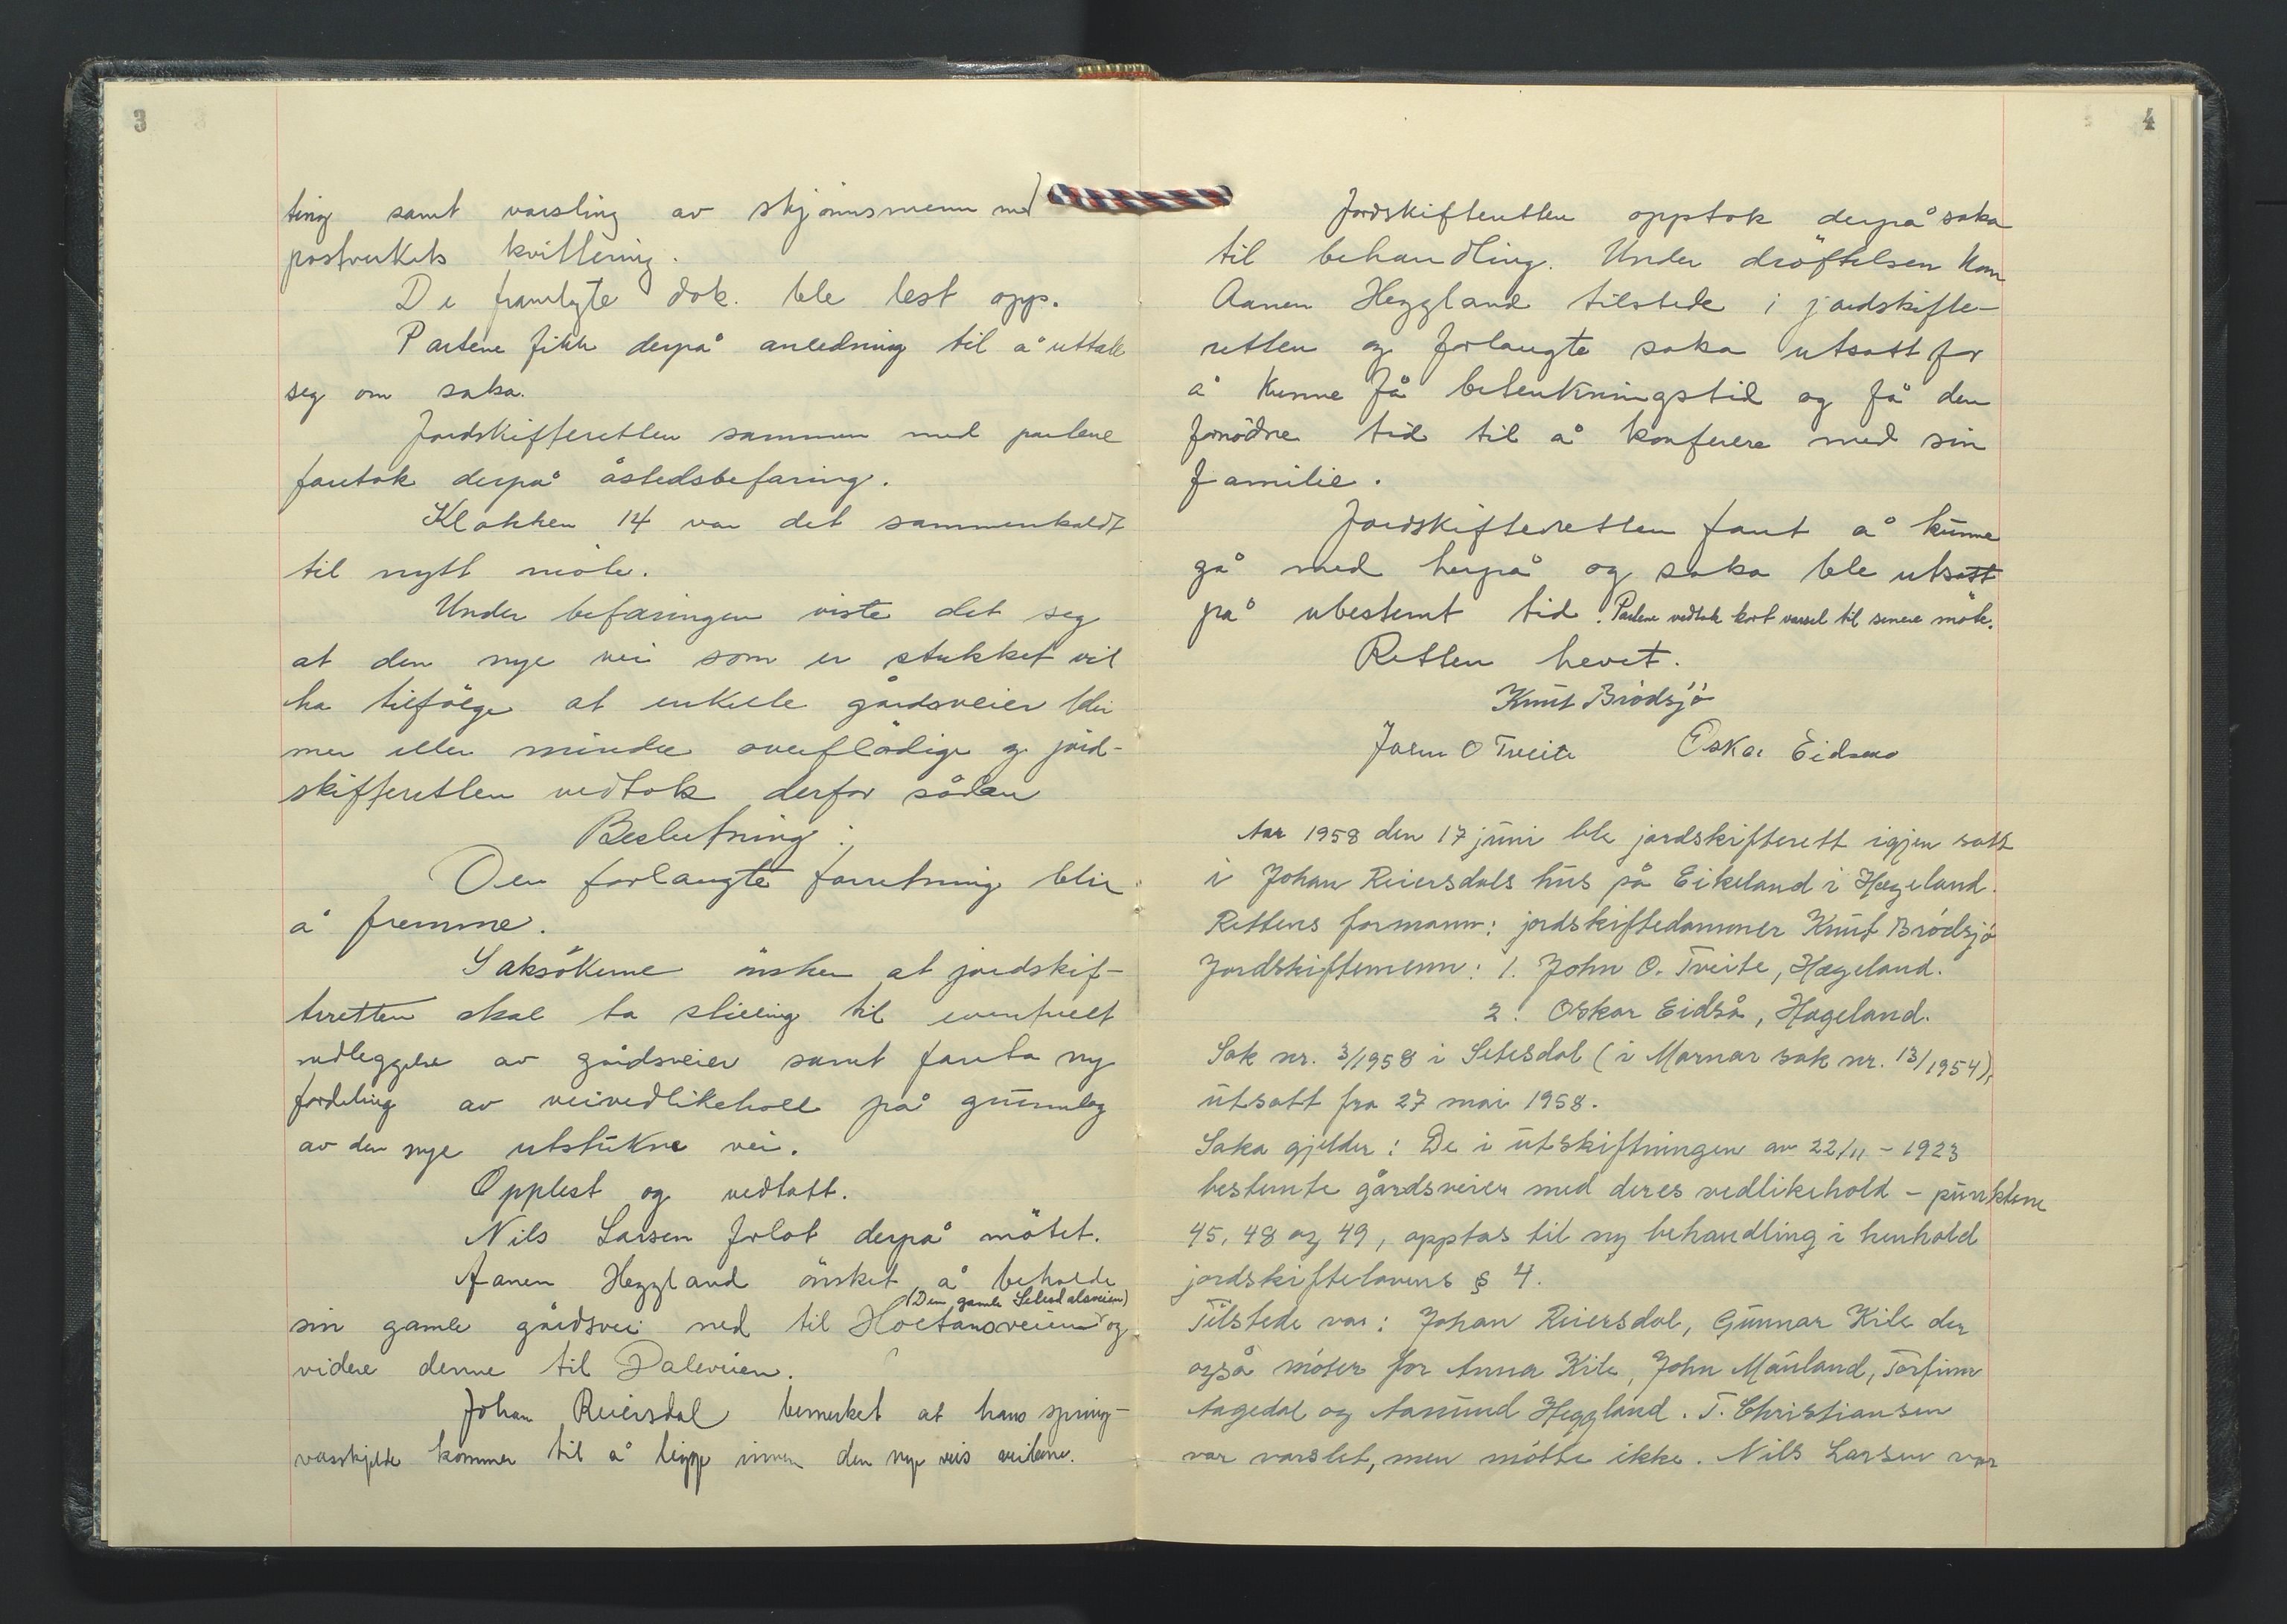 3
ting samt varsling av skjönnsmenn med
postverkets kvittering.
De framlagte dok. ble lest opp.
Partene fikk derpå anledning til å uttale
seg om saka.
Jordskifteretten sammen med partene
foretok derpå åstedsbefaring.
Klokken 14 var det sammenkaldt
til nytt möte.
Under befaringen viste det seg
at den nye vei som er stukket vil
ha tilfölge at enkelte gårdsveier blir
mer eller mindre overflödige og jord-
skifteretten vedtok derfor sådan
Beslutning:
Den forlangte forretning blir
å fremme.
Saksökerne önsker at jordskif-
teretten skal ta stilling til eventuell
nedleggelse av gårdsveier samt foreta ny
fordeling av veivedlikehold på grunnlag
av den nye utstukne vei.
Opplest og vedtatt.
Nils Larsen forlot derpå mötet.
Aanen Heggland önsket å beholde
(Den gamle Setesdalsveien)
sin gamle gårdsvei ned til og
videre denne til Daleveien.
Johan Reiersdal bemerket at hans spring-
vasskjelde kommer til å ligge innen den nye veis
4
Jordskifteretten opptok derpå saka
til behandling. Under dröftelsen kom
Aanen Heggland tilstede i jordskifte-
retten og forlangte saka utsatt for
å kunne få betenkningstid og få den
fornödne tid til å konferere med sin
familie.
Jordskifteretten fant å kunne
gå med herpå og saka ble utsatt
på ubestemt tid. Partene vedtok kort varsel til senere möte.
Retten hevet.
Knut Brödsjö
John O Tveite Oskar Eidsaa
Aar 1958 den 17 juni ble jordskifterett igjen satt
i Johan Reiersdals hus på Eikeland i Hægeland.
Rettens formann: jordskiftedommer Knut Brödsjö
Jordskiftemenn: 1. John O. Tveite, Hægeland.
2. Oskar Eidså, Hægeland.
Sak nr. 3/1958 i Setesdal (i Marnar sak nr. 13/1954),
utsatt fra 27 mai 1958.
Saka gjelder: De i utskiftningen av 22/11 - 1923
bestemte gårdsveier med deres vedlikehold - punktene
45, 48 og 49, opptas til ny behandling i henhold
jordskiftelovens § 4.
Tilstede var: Johan Reiersdal, Gunnar Kile der
også möter for Anna Kile, John Mauland, Torfinn
Aagedal og Aasmund Heggland. T. Christiansen
var varslet, men mötte ikke. Nils Larsen var